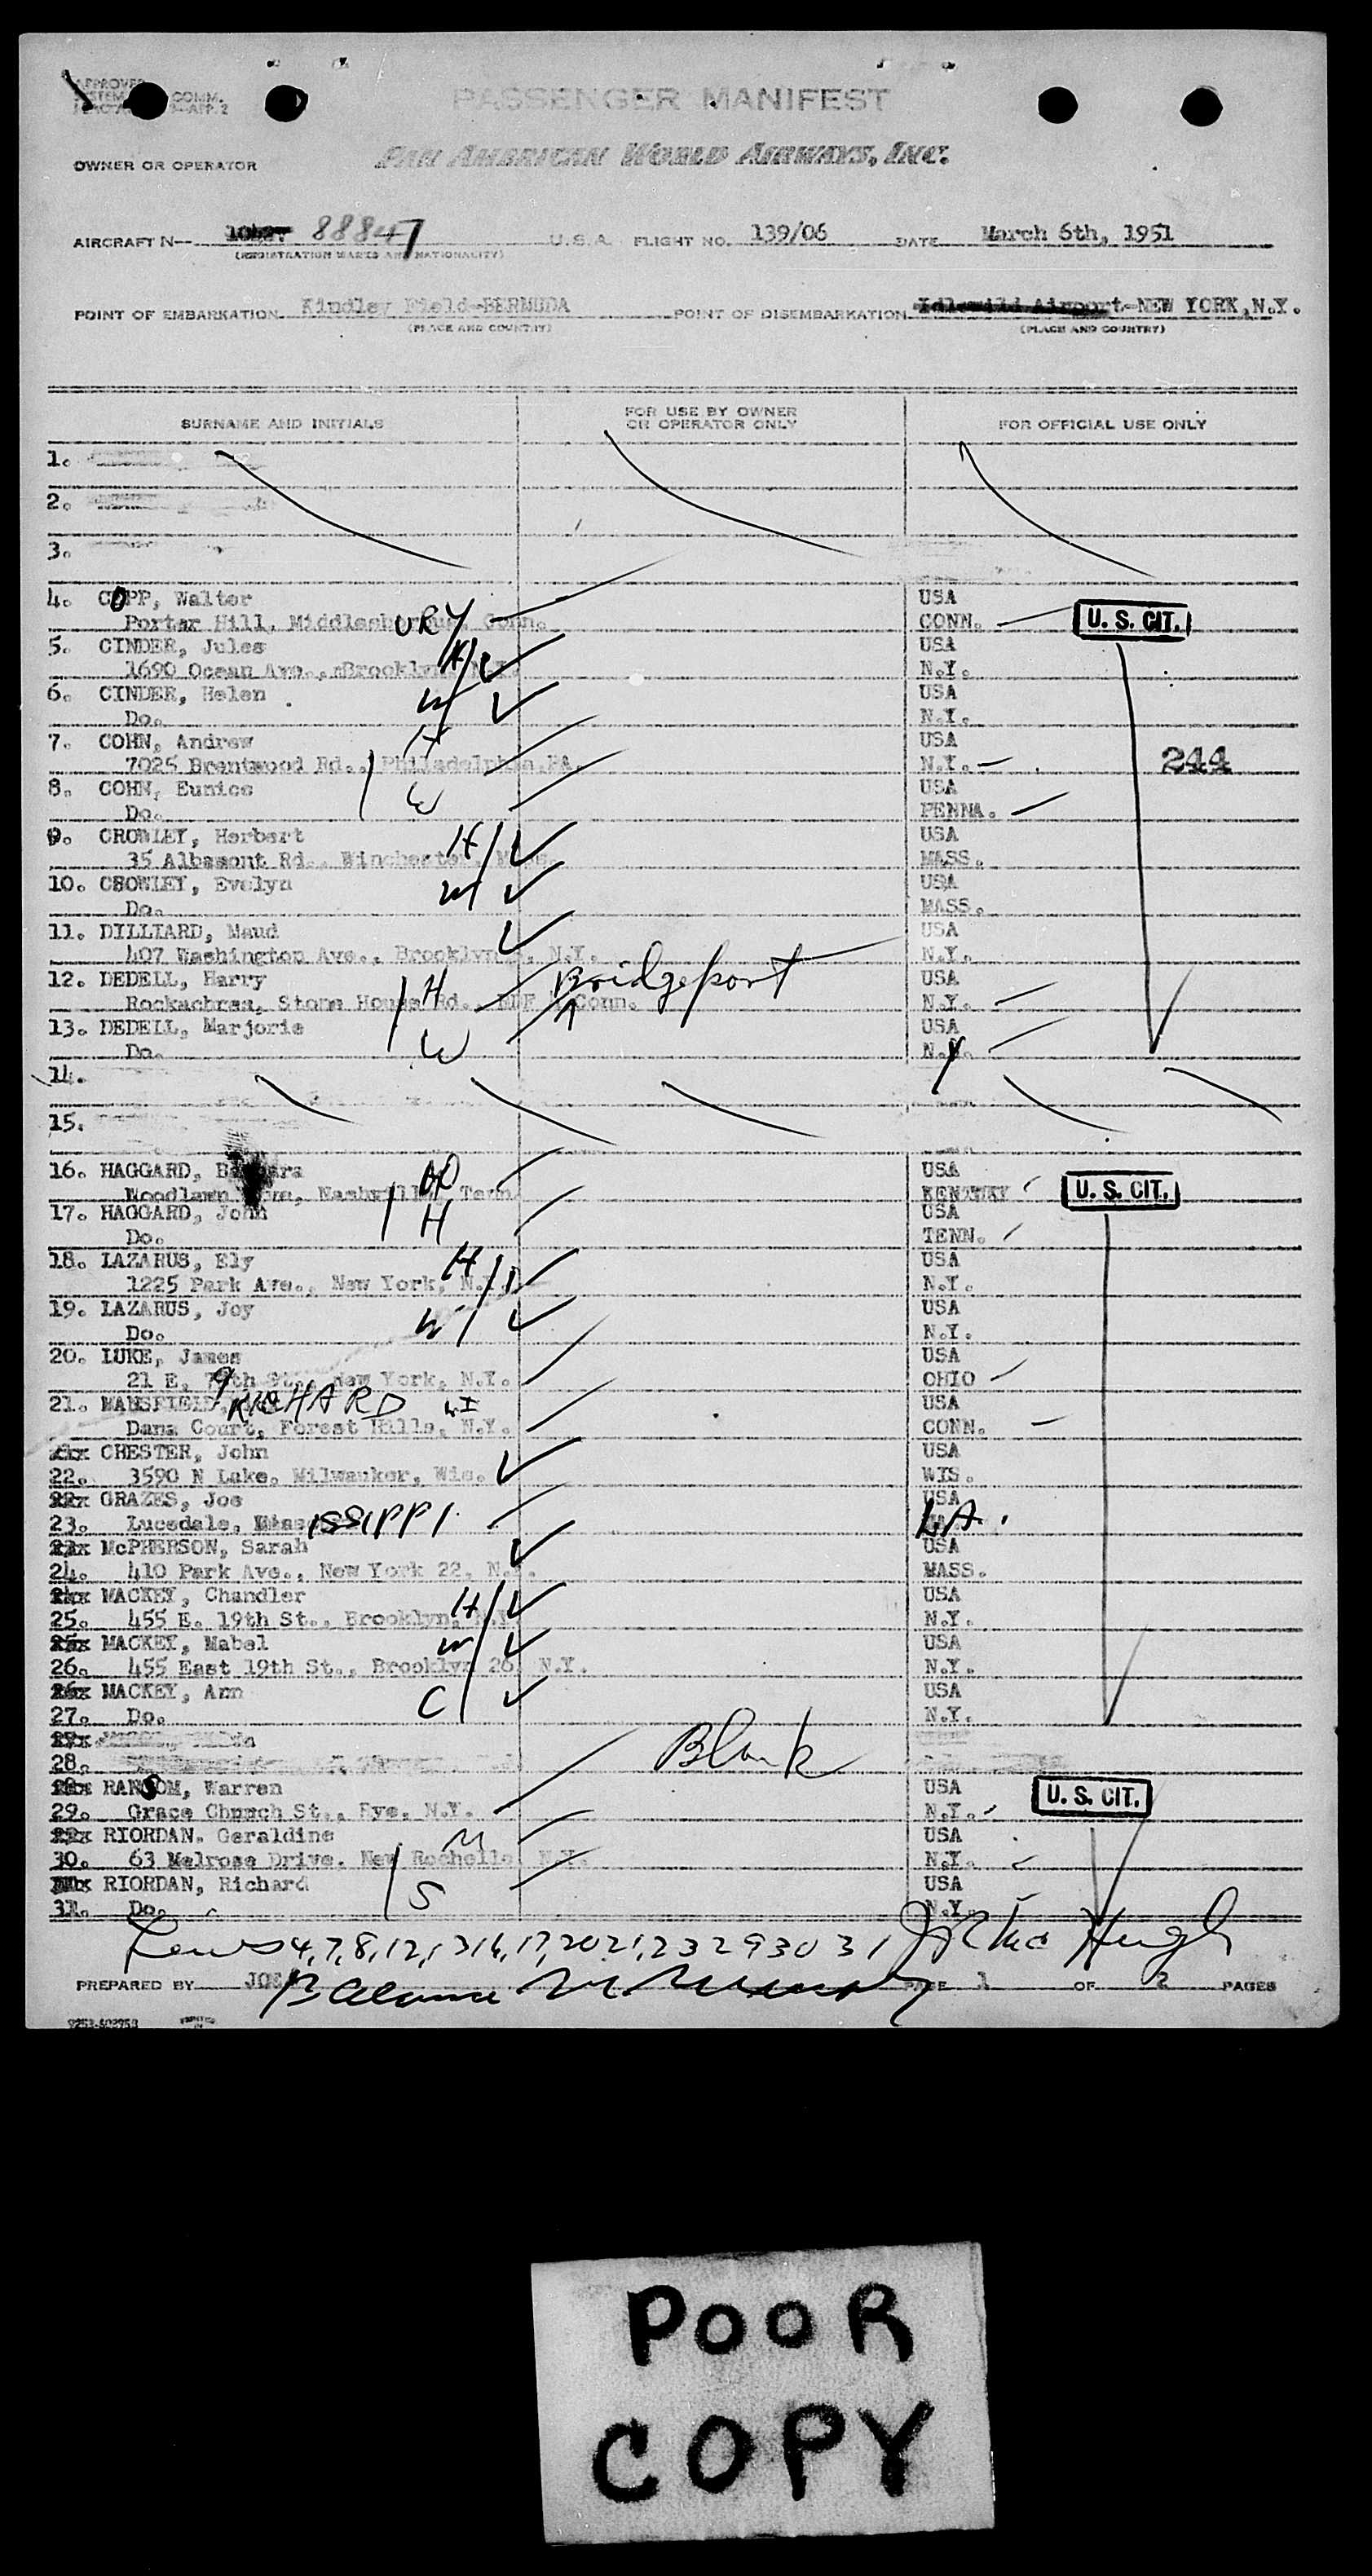 APPROVED
COMM.
PASSENGER MANIFEST
OWNER OR OPERATOR PAN AMERICAN WORLD AIRWAYS, INC.
AIRCRAFT N— 88847 U.S.A. FLIGHT NO. 139/06 DATE March 6th, 1951
(REGISTRATION MARKS AND NATIONALITY)
POINT OF EMBARKATION Kindley Field-BERMUDA POINT OF DISEMBARKATION Idlewild Airport-NEW YORK,N.Y.
(PLACE AND COUNTRY) (PLACE AND COUNTRY)
SURNAME AND INITIALS FOR USE BY OWNER OR OPERATOR ONLY FOR OFFICIAL USE ONLY
1.
2.
3.
4. COPP, Walter USA
Porter Hill, Middlebury, Conn. CONN. U. S. CIT.
5. CINDER, Jules H USA
1690 Ocean Ave., Brooklyn N.Y. N.Y.
6. CINDER, Helen W USA
Do. N.Y.
7. COHN, Andrew H USA
7025 Brentwood Rd., Philadelphia,PA. N.Y. 244
8. COHN, Eunice W USA
Do. PENNA.
9. CROWLEY, Herbert H USA
35 Albamont Rd., Winchester, Mass. MASS.
10. CROWLEY, Evelyn W USA
Do. MASS.
11. DILLIARD, Maud USA
407 Washington Ave., Brooklyn, N.Y. N.Y.
12. DEDELL, Harry H Bridgeport USA
Rockachres, Stone House Rd., Conn. N.Y.
13. DEDELL, Marjorie W USA
Do. N.Y.
14.
15.
16. HAGGARD, Barbara USA
Woodlawn Nashville, Tenn. KENTUCKY U. S. CIT.
17. HAGGARD, John H USA
Do. TENN.
18. LAZARUS, Ely H USA
1225 Park Ave., New York, N.Y. N.Y.
19. LAZARUS, Joy W USA
Do. N.Y.
20. LUKE, James USA
21 E. 79th St., New York, N.Y. OHIO
21. MANSFIELD, RICHARD USA
Dana Court, Forest Hills, N.Y. CONN.
CHESTER, John USA
22. 3590 N Lake. Milwauker, Wis. WIS.
GRAZES, Joe USA
23. Lucedale, MissISSIPPI. LA.
McPHERSON, Sarah USA
24. 410 Park Ave., New York 22, N.Y. MASS.
MACKEY, Chandler H USA
25. 455 E. 19th St., Brooklyn, N.Y. N.Y.
MACKEY, Mabel W USA
26. 455 East 19th St., Brooklyn 26, N.Y. N.Y.
MACKEY, Ann C USA
27. Do. N.Y.
28. Blank
RANSOM, Warren USA
29. Grace Church St., Rye, N.Y. N.Y. U. S. CIT.
RIORDAN. Geraldine M USA
30. 63 Melrose Drive. New Rochelle, N.Y. N.Y.
RIORDAN, Richard S USA
31. Do. N.Y.
4,7,8,12,13,16,17,20,21,23 29 30 31
PREPARED BY Balance PAGE 1 OF 2 PAGES
POOR
COPY